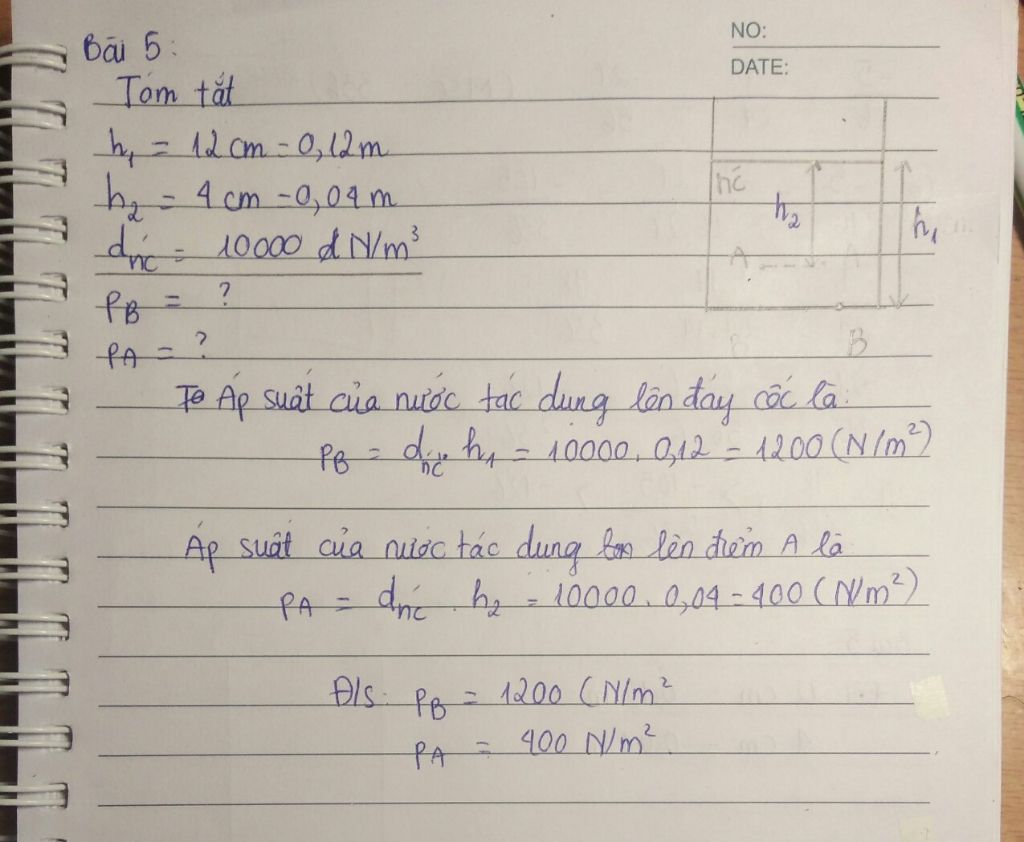 NO:
DATE:
Bài 5:
Tóm tắt
h₁ = 12 cm = 0,12 m
h₂ = 4 cm = 0,04 m
dnć = 10000 N/m³
pB = ?
pA = ?
nć
h₂
h₁
A
A
B
B
Áp suất của nước tác dụng lên đáy cốc là:
pB = dnć. h₁ = 10000. 0,12 = 1200 (N/m²)
Áp suất của nước tác dụng lên điểm A là
pA = dnć . h₂ = 10000. 0,04 = 400 (N/m²)
Đ/s: pB = 1200 (N/m²
pA = 400 N/m²